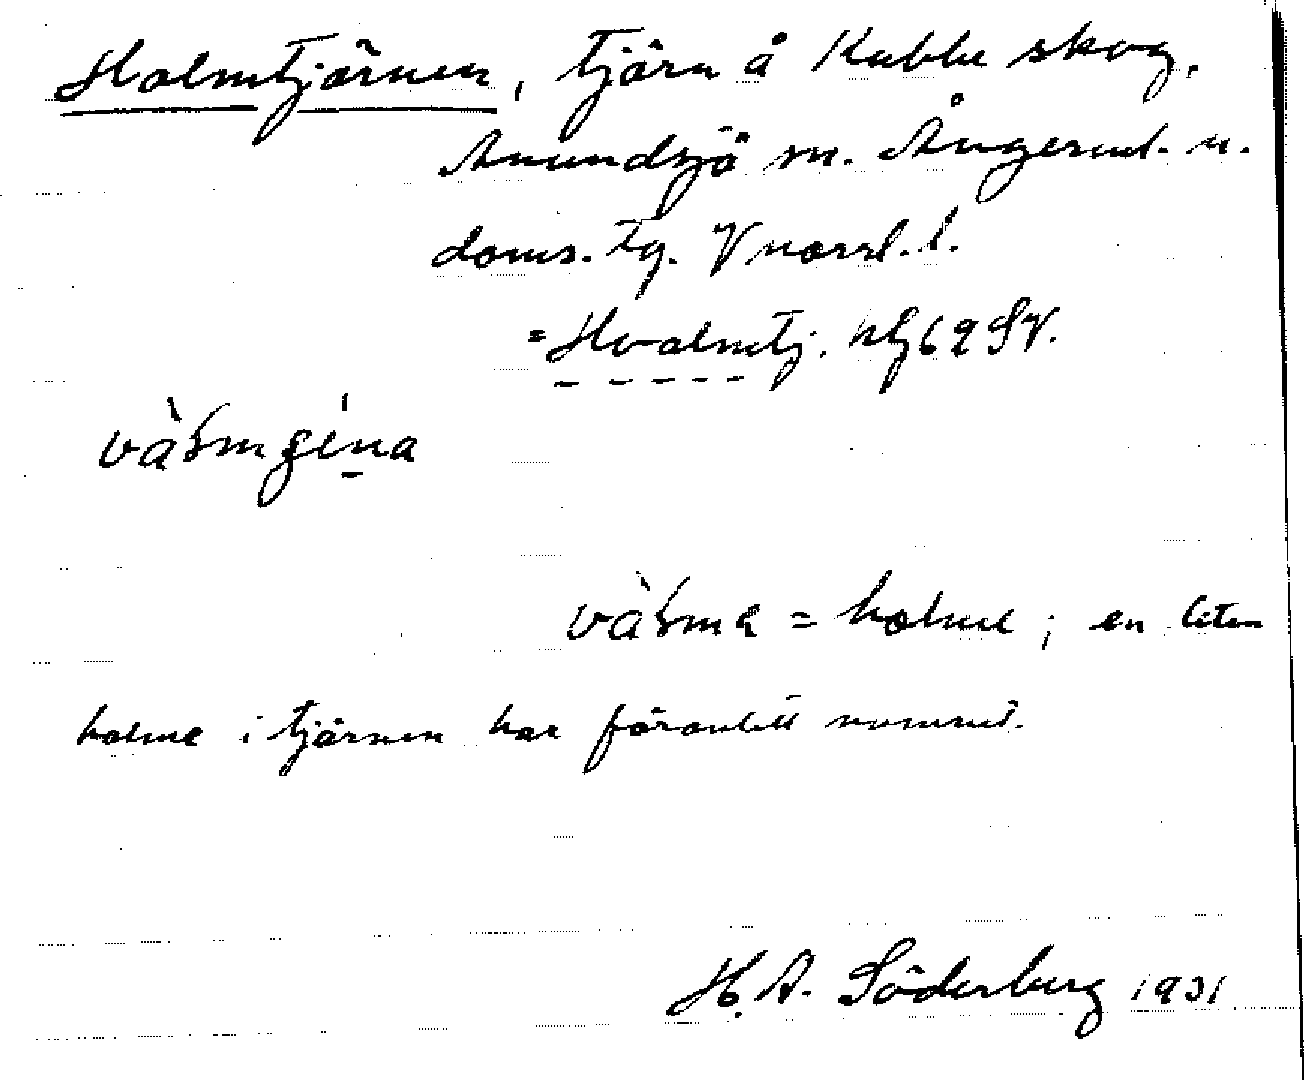 Holmtjärnen, tjärn å Kubbe skog,
Anundsjö sn. Ångerml. n.
doms. tg. Vnorrl. l.
=Hvalmtj. hs 62 SV.
vàʟmgína
vàʟma = holme; en liten
holme i tjärnen har föranlett namnet.
H. A. Söderberg 1931